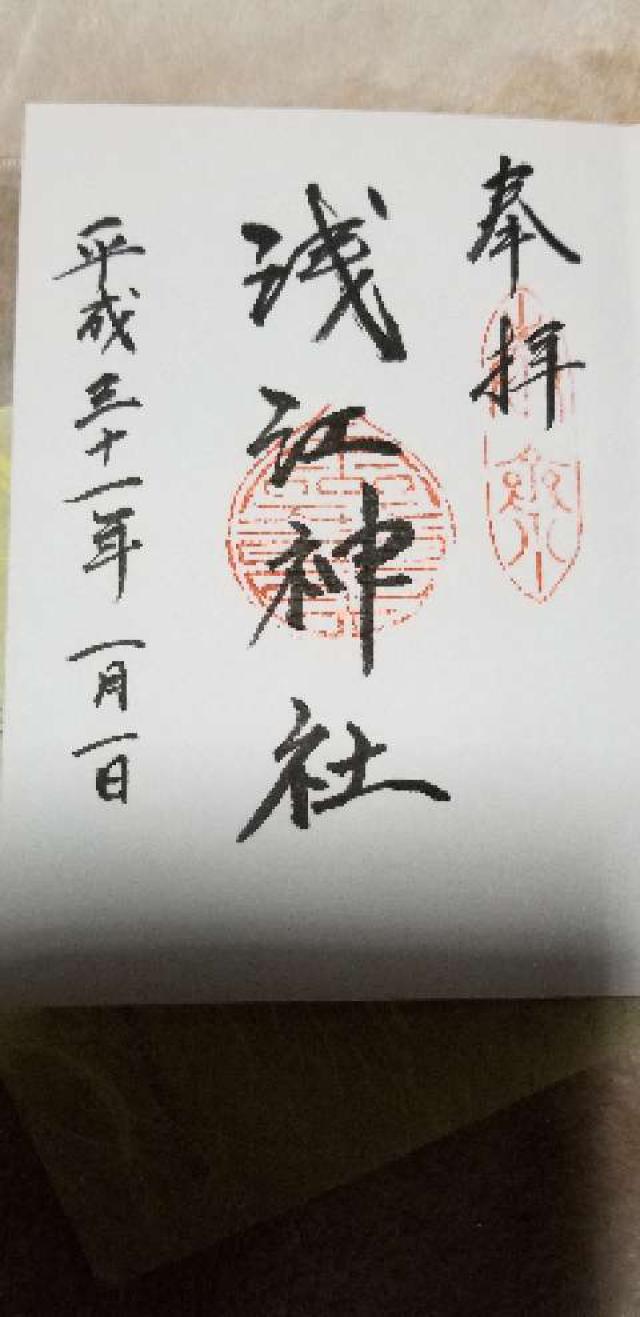 奉拝
浅江神社
平成三十一年一月一日